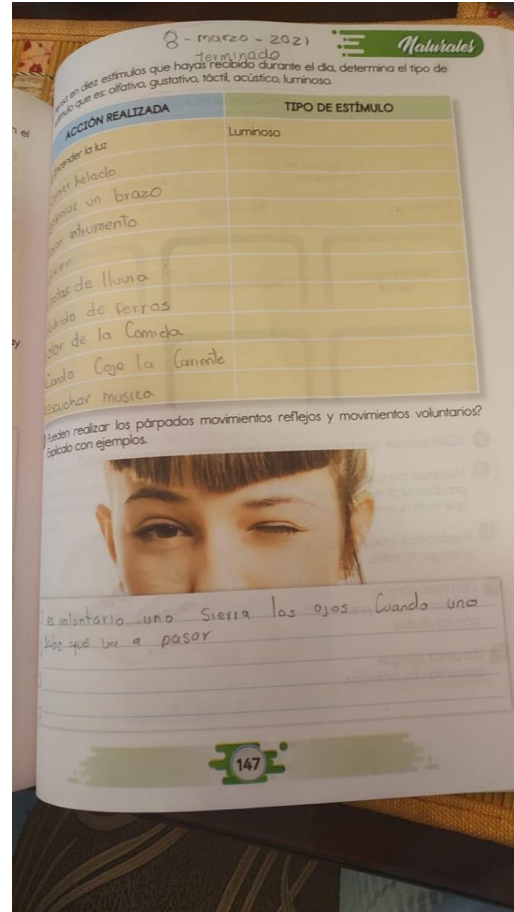 8 - marzo - 2021
terminado
Naturales
en diez estímulos que hayas recibido durante el día, determina el tipo de
que es: olfativo, gustativo, táctil, acústico, luminoso.
ACCIÓN REALIZADA
TIPO DE ESTÍMULO
Encender la luz
Luminoso
helado
un brazo
intrumento
de lluvia
de perros
olor de la Comida
Cojo la Corriente
escuchar musica
Pueden realizar los párpados movimientos reflejos y movimientos voluntarios?
Explícalo con ejemplos.
es voluntario uno Sierra los ojos Cuando uno
sabe que va a pasar
147